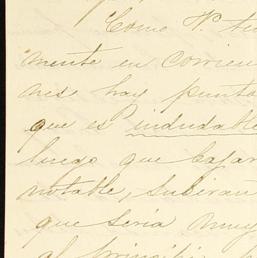 Como V.
mente en corrien
nes hay punto
que es indudable
luego que bajar
notable, subiran
que seria muy
al principio